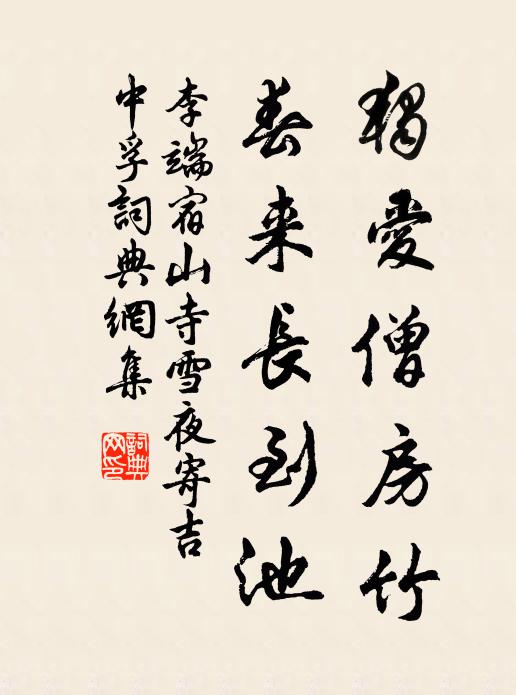 獨愛僧房竹
春来長到池
李端宿山寺雪夜寄吉
中孚詞典網集
詞典网印